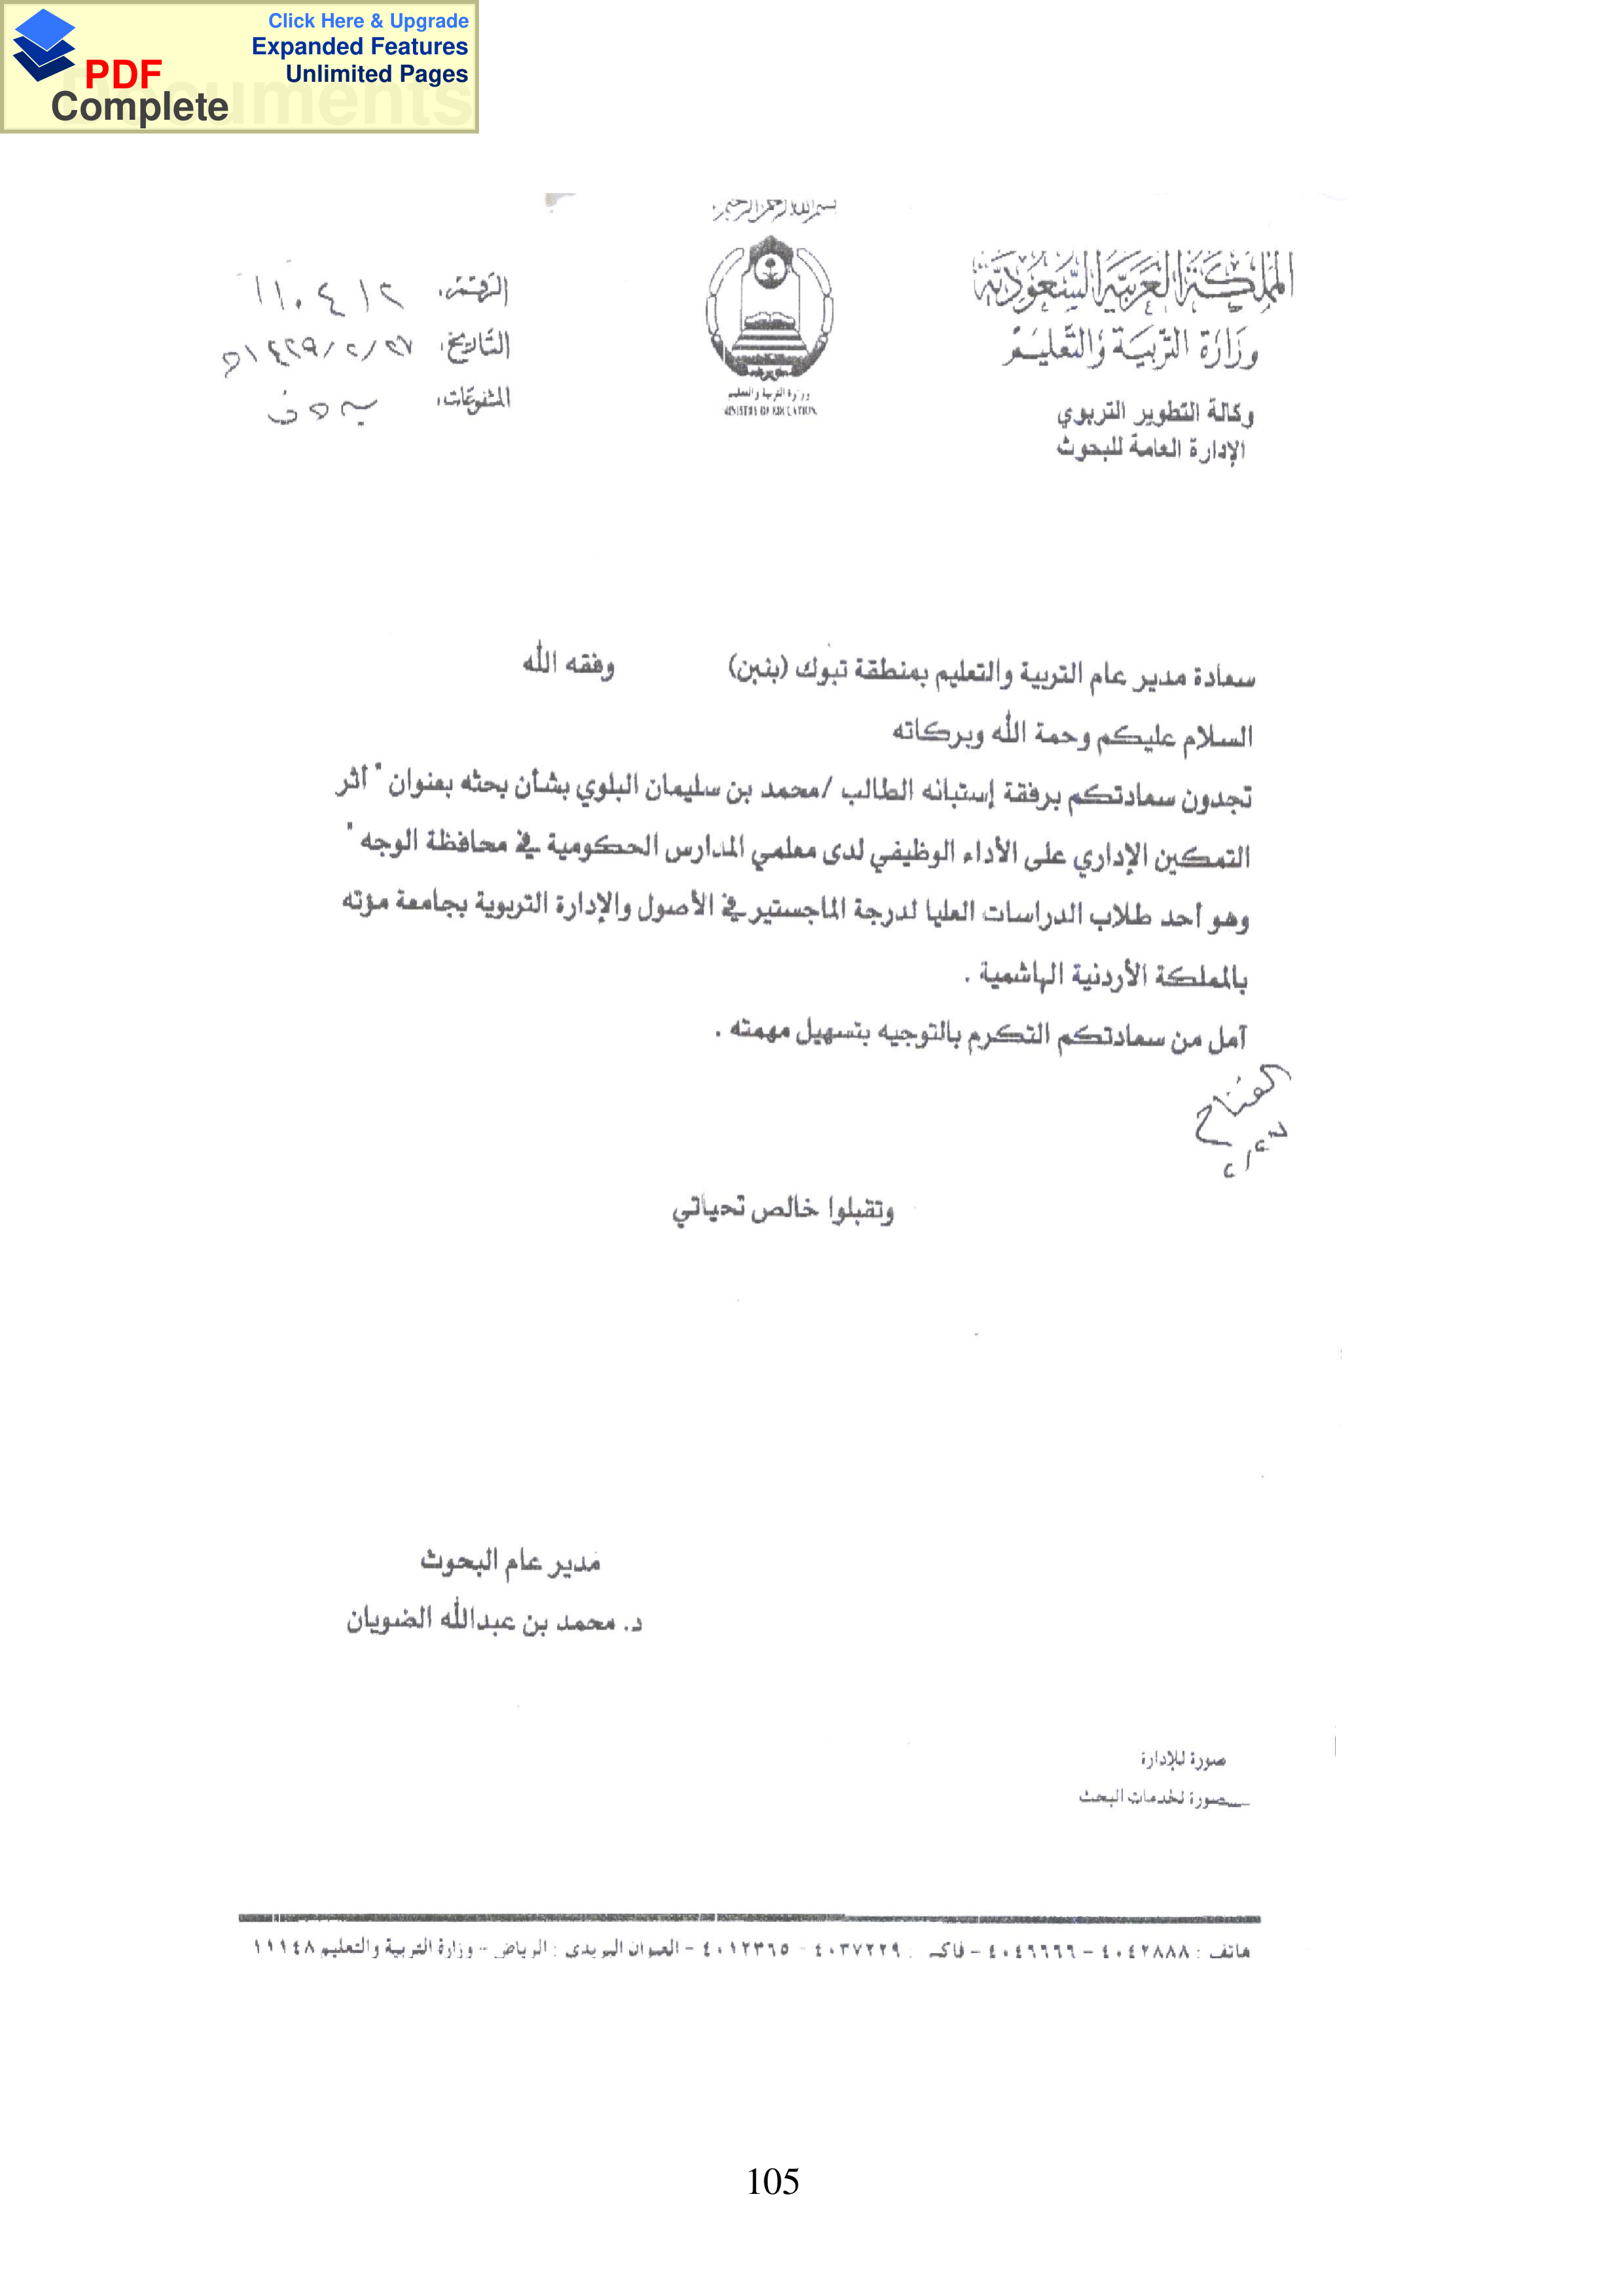 Click Here & Upgrade
Expanded Features
Unlimited Pages
PDF
Complete
Documents
بسم الله الرحمن الرحيم
المملكة العربية السعودية
وزارة التربية والتعليم
وكالة التطوير التربوي
الإدارة العامة للبحوث
وزارة التربية والتعليم
MINISTRY OF EDUCATION
الرقم:
التاريخ: ٢٧/٢/١٤٢٩ه
المشفوعات:
سعادة مدير عام التربية والتعليم بمنطقة تبوك (بنين) وفقه الله
السلام عليكم وحمة الله وبركاته
تجدون سعادتكم برفقة إستبانه الطالب /محمد بن سليمان البلوي بشأن بحثه بعنوان " أثر
التمكين الإداري على الأداء الوظيفي لدى معلمي المدارس الحكومية في محافظة الوجه "
وهو أحد طلاب الدراسات العليا لدرجة الماجستير في الأصول والإدارة التربوية بجامعة مؤته
بالمملكة الأردنية الهاشمية .
آمل من سعادتكم التكرم بالتوجيه بتسهيل مهمته .
وتقبلوا خالص تحياتي
مدير عام البحوث
د. محمد بن عبدالله الضويان
صورة للإدارة
صورة لخدمات البحث
هاتف : ٤٠٤٢٨٨٨ – ٤٠٤٦٦٦٦ – فاكس : ٤٠٣٧٢٢٩ - ٤٠١٢٣٦٥ – العنوان البريدي : الرياض – وزارة التربية والتعليم ١١١٤٨
105